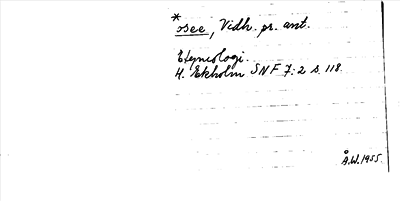 *
osee, Vidh. pr. ant.
Etymologi.
H. Ekholm SNF 7:2 s. 118.
Å.W. 1955.